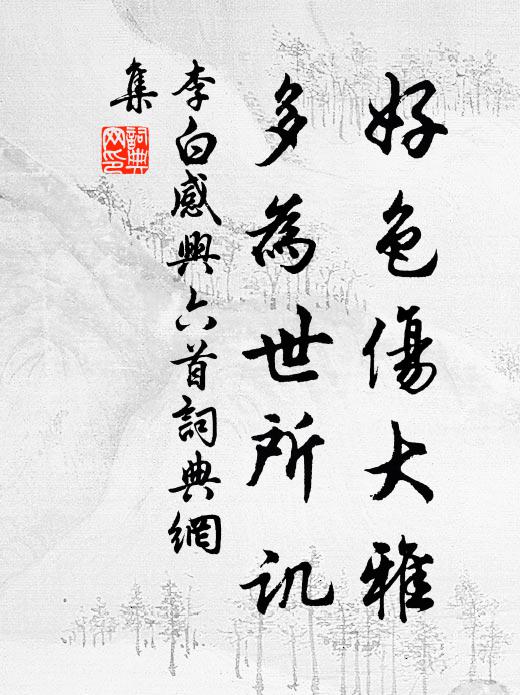 好色傷大雅
多為世所讥
李白感興六首詞典網
集
詞典網印